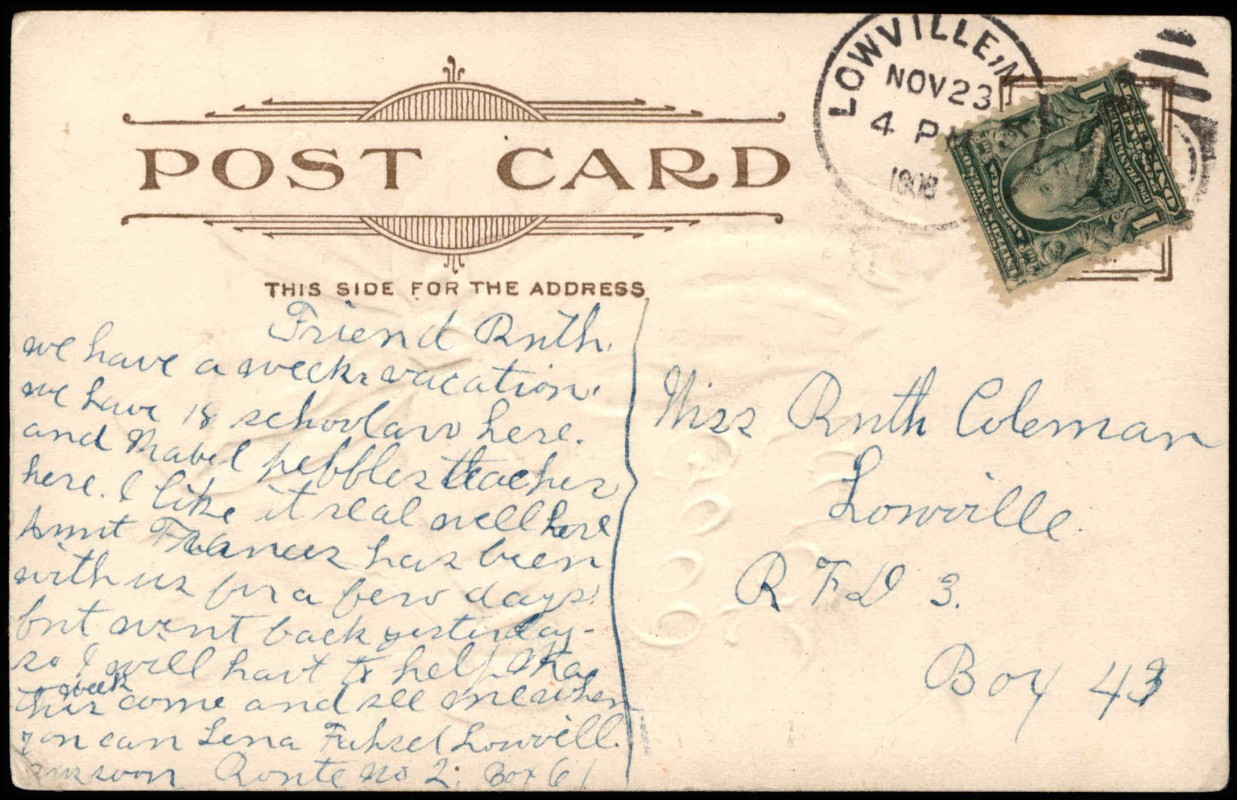 POST CARD
THIS SIDE FOR THE ADDRESS
LOWVILLE, N
NOV 23
4 P
1908
Friend Ruth.
we have a weeks vacation.
we have 18 schoolars here.
and Mabel pebbles teaches
here. I like it real well here
Aunt Frances has been
with us for a few days
but went back yesterday-
so I will hav to help Ma
this week come and see me when
you can Lena Fuhsel Lowvill.
ans soon Route No 2. Box 61
Miss Ruth Coleman
Lowville.
R F D 3.
Box 43